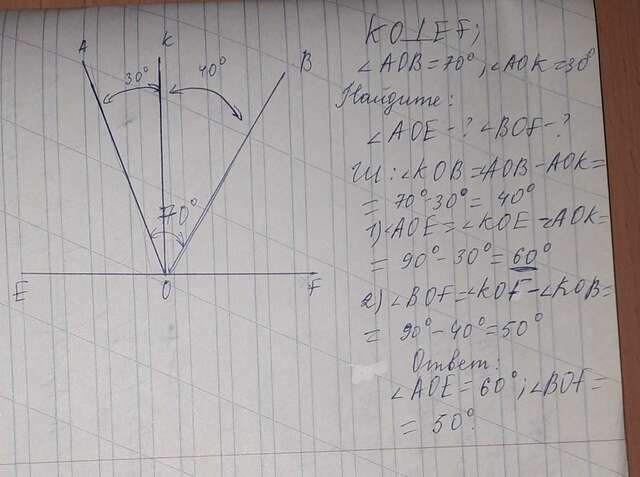 A
K
B
30°
40°
70°
E
O
F
KO⊥EF;
∠AOB=70°, ∠AOK=30°
Найдите:
∠AOE-? ∠BOF-?
∠KOB=AOB-AOK=
= 70°-30°= 40°
1)∠AOE=∠KOE=AOK=
= 90°-30°=60°
2) ∠BOF=∠KOF-∠KOB=
= 90°-40°=50°
Ответ:
∠AOE=60°; ∠BOF=
= 50°.